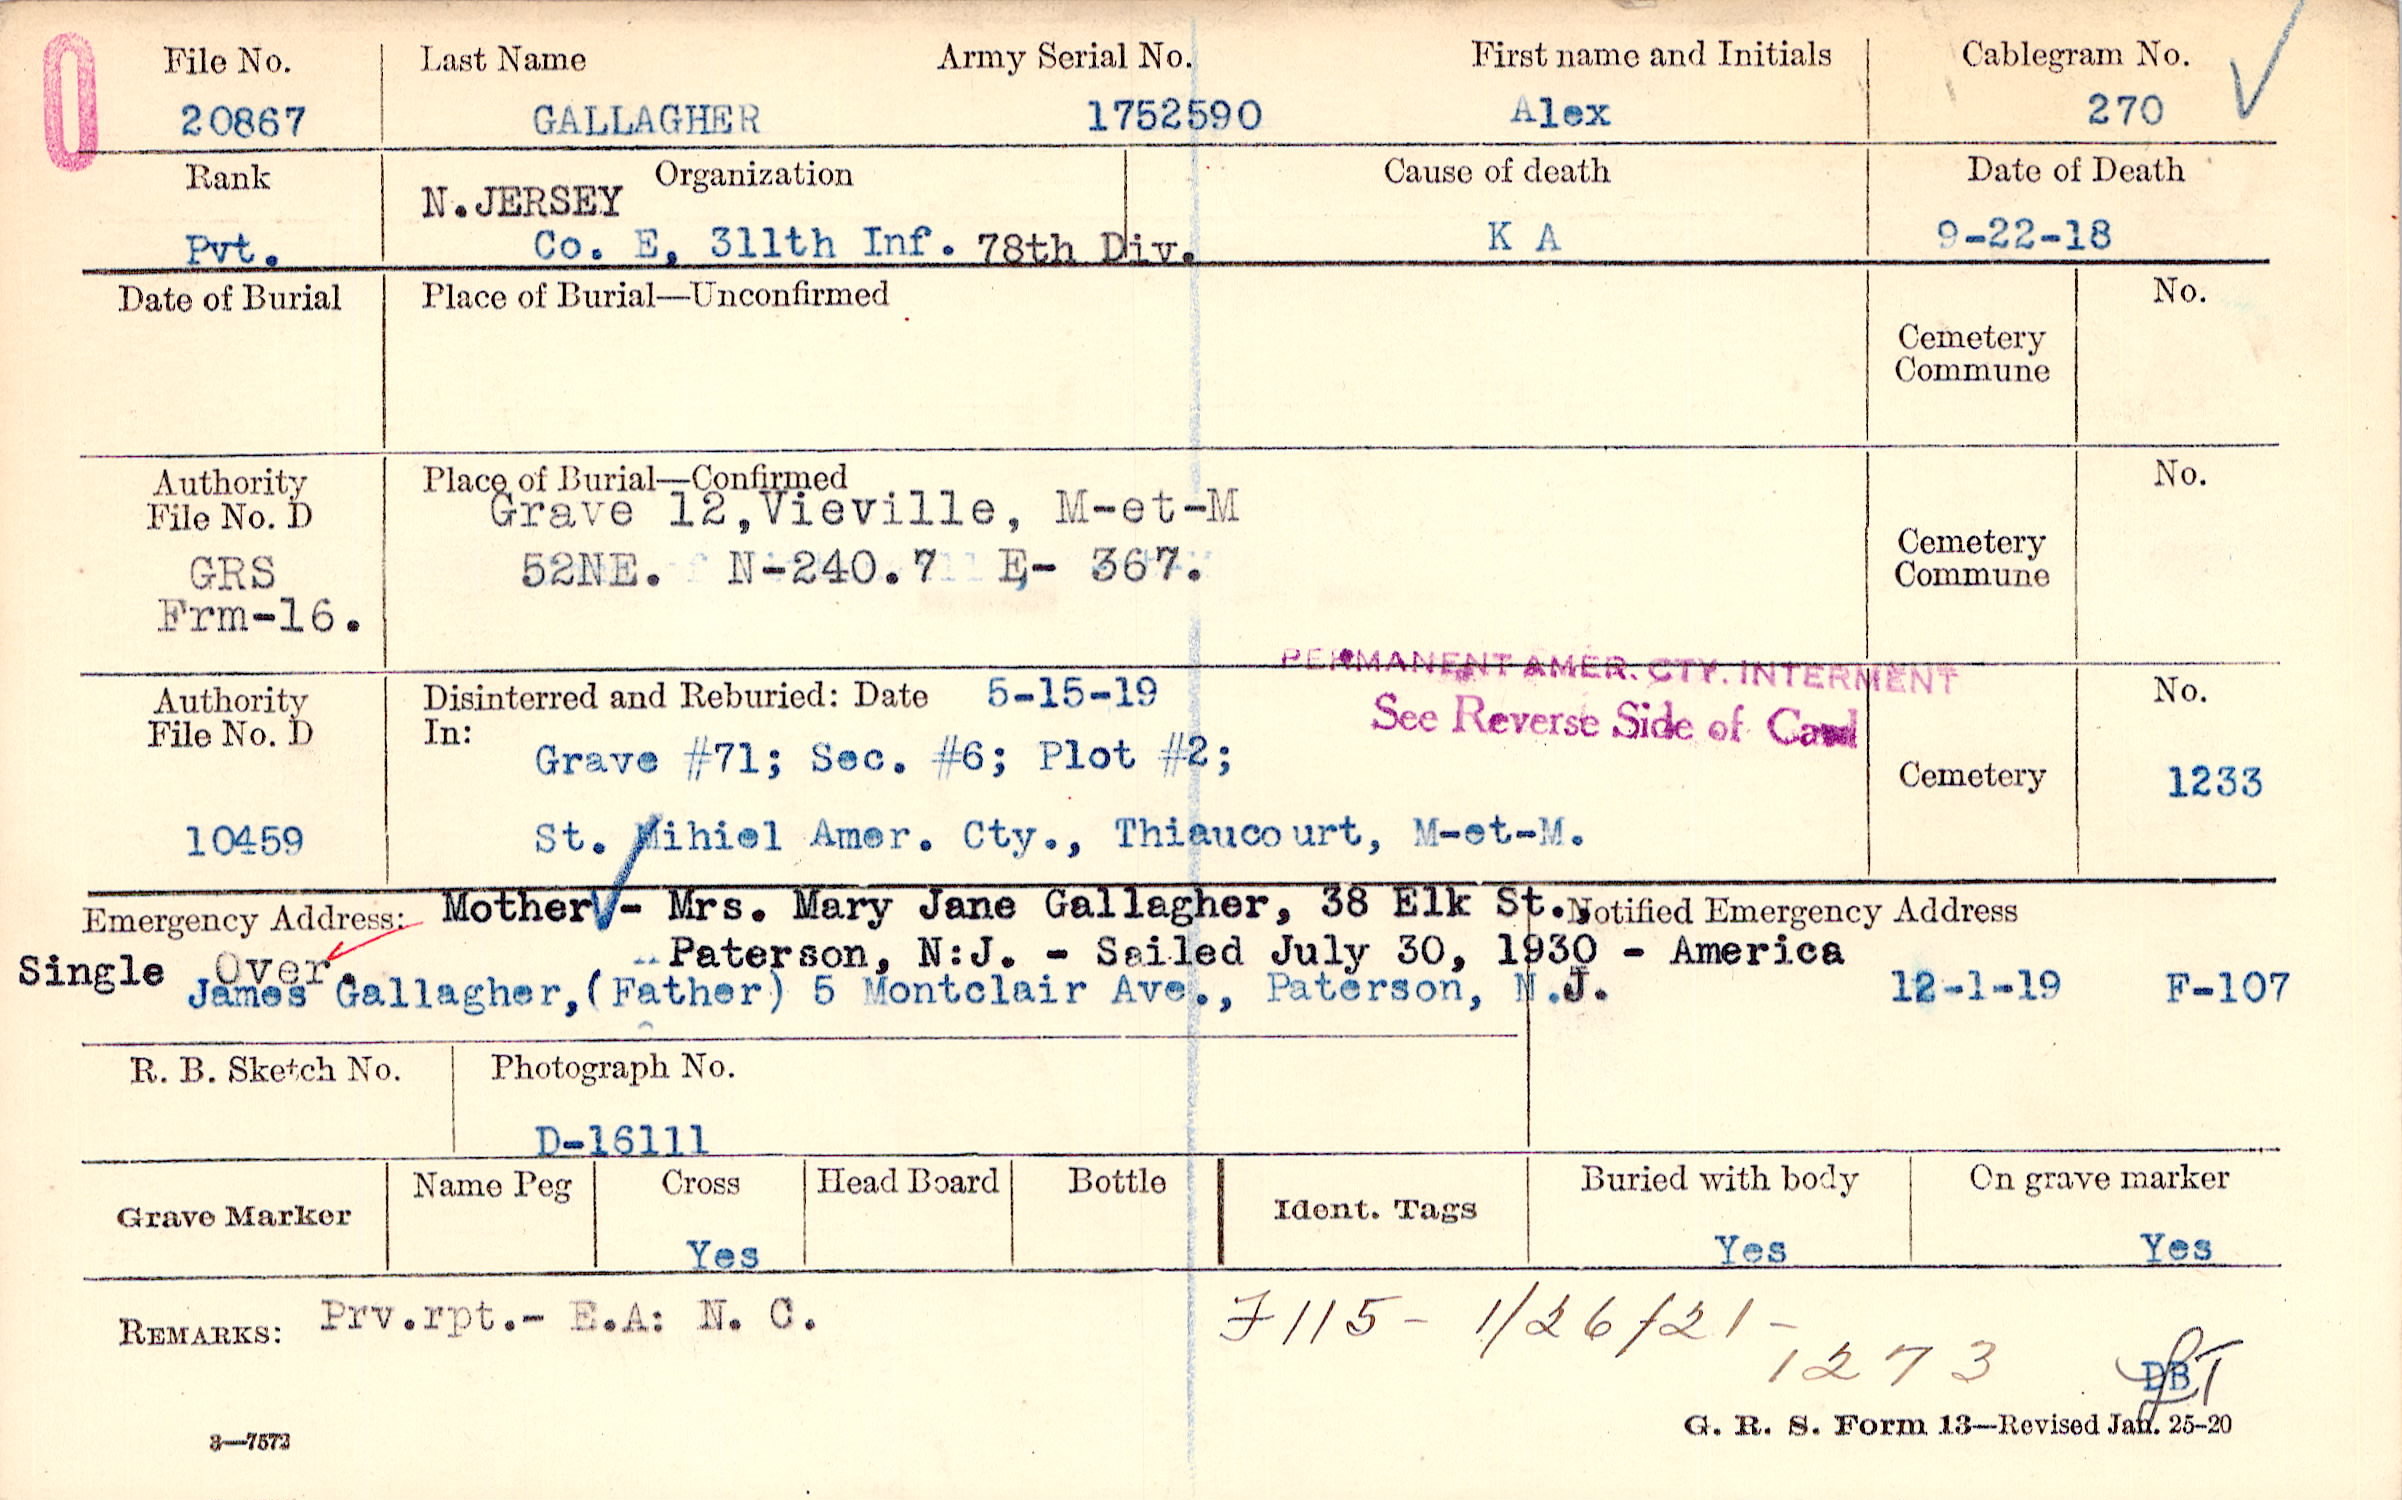 File No. Last Name Army Serial No. First name and Initials Cablegram No.
20867 GALLAGHER 1752590 Alex 270
Rank Organization Cause of death Date of Death
N.JERSEY
Pvt. Co. E, 311th Inf. 78th Div. K A 9-22-18
Date of Burial Place of Burial—Unconfirmed No.
Cemetery
Commune
Authority Place of Burial—Confirmed No.
File No. D Grave 12,Vieville, M-et-M
GRS 52NE. N-240.7 E- 367. Cemetery
Commune
Frm-16.
PERMANENT AMER. CTY. INTERMENT
Authority Disinterred and Reburied: Date 5-15-19 See Reverse Side of Card No.
File No. D In:
Grave #71; Sec. #6; Plot #2; Cemetery 1233
10459 St. Mihiel Amer. Cty., Thiaucourt, M-et-M.
Emergency Address: Mother - Mrs. Mary Jane Gallagher, 38 Elk St., Notified Emergency Address
Paterson, N:J. - Sailed July 30, 1930 - America
Single Over.
James Gallagher,(Father) 5 Montclair Ave., Paterson, N.J. 12-1-19 F-107
R. B. Sketch No. Photograph No.
D-16111
Grave Marker Name Peg Cross Head Board Bottle Ident. Tags Buried with body On grave marker
Yes Yes Yes
REMARKS: Prv.rpt.- E.A: N. C. F115- 1/26/21-
1273
DB
G. R. S. Form 13—Revised Jan. 25-20
3—7573